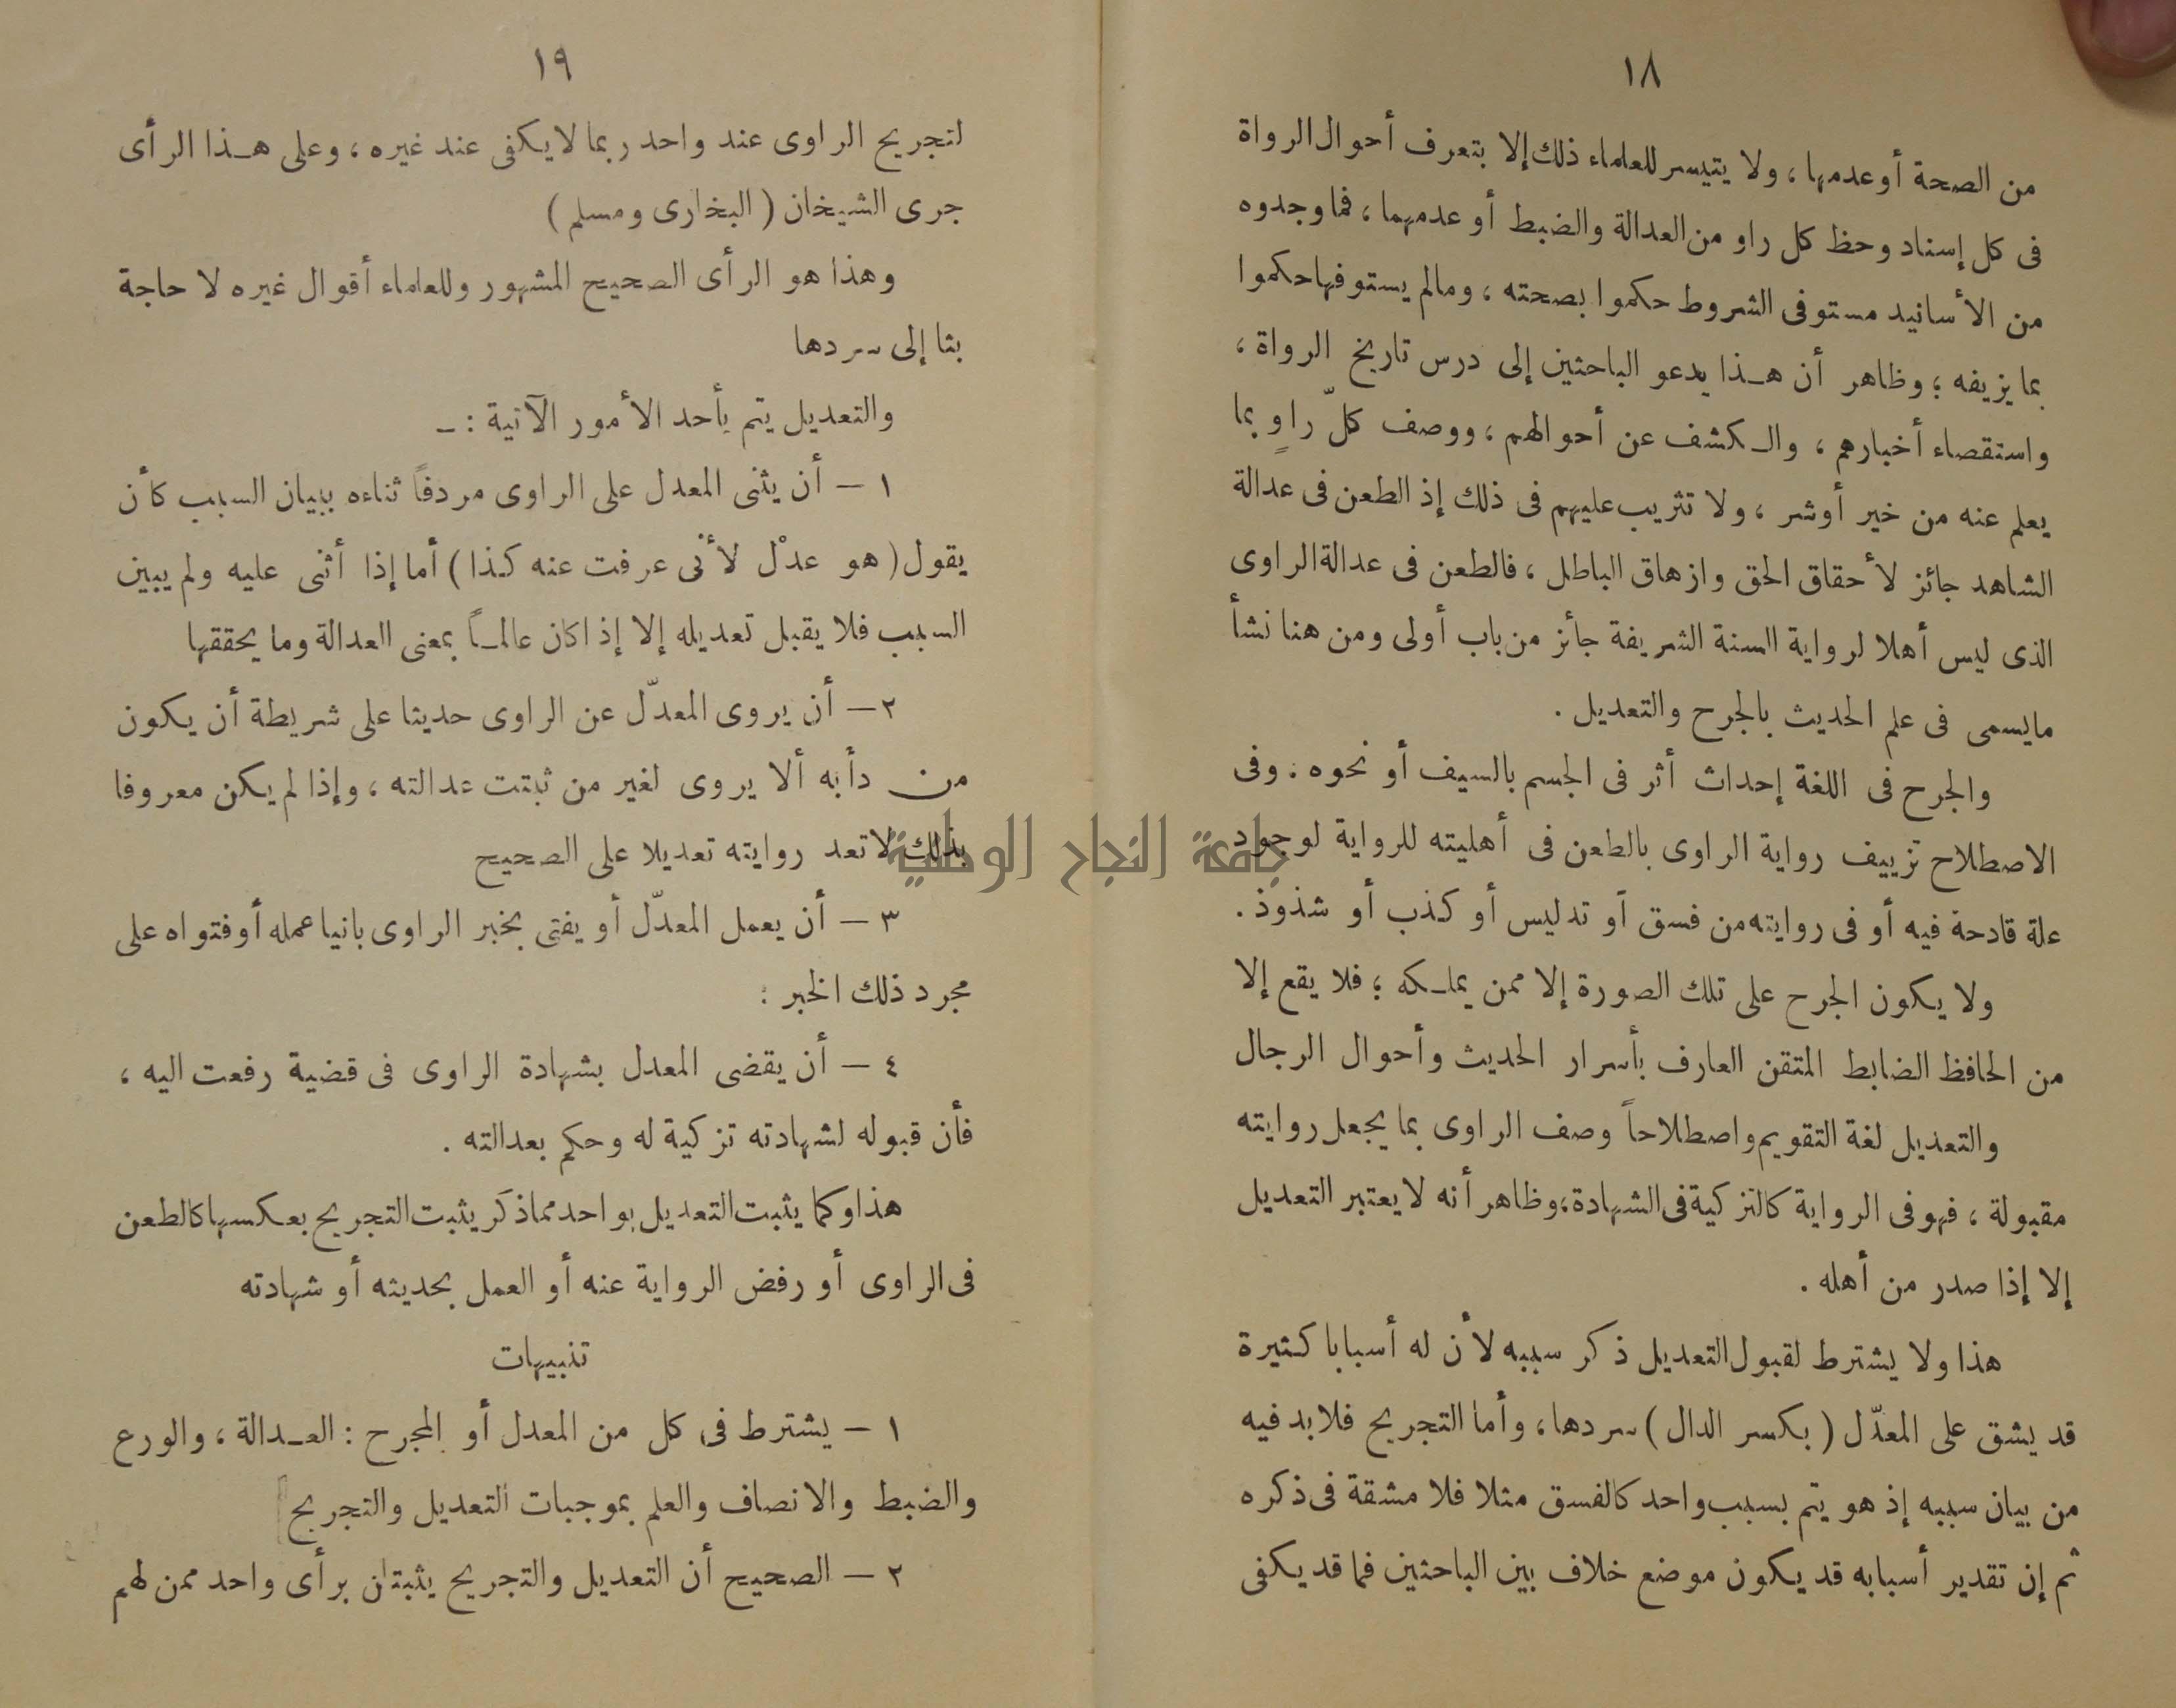 ١٨
من الصحة أو عدمها ، ولا يتيسر للعلماء ذلك إلا بتعرف أحوال الرواة
فى كل إسناد وحظ كل راو من العدالة والضبط أو عدمهما ، فما وجدوه
من الأسانيد مستوفى الشروط حكموا بصحته ، ومالم يستوفها حكموا
بما يزيفه ؛ وظاهر أن هـذا يدعو الباحثين إلى درس تاريخ الرواة ،
واستقصاء أخبارهم ، والـكشف عن أحوالهم ، ووصف كلّ راوٍ بما
يعلم عنه من خير أوشر ، ولا تثريب عليهم فى ذلك إذ الطعن فى عدالة
الشاهد جائز لأحقاق الحق وازهاق الباطل ، فالطعن فى عدالة الراوى
الذى ليس أهلا لرواية السنة الشريفة جائز من باب أولى ومن هنا نشأ
مايسمى فى علم الحديث بالجرح والتعديل .
والجرح فى اللغة إحداث أثر فى الجسم بالسيف أو نحوه . وفى
الاصطلاح تزييف رواية الراوى بالطعن فى أهليته للرواية لوجود
علة قادحة فيه أو فى روايته من فسق أو تدليس أو كذب أو شذوذ .
ولا يكون الجرح على تلك الصورة إلا ممن يملـكه ؛ فلا يقع إلا
من الحافظ الضابط المتقن العارف بأسرار الحديث وأحوال الرجال
والتعديل لغة التقويم واصطلاحاً وصف الراوى بما يجعل روايته
مقبولة ، فهو فى الرواية كالتزكية فى الشهادة ؛ وظاهر أنه لا يعتبر التعديل
إلا إذا صدر من أهله .
هذا ولا يشترط لقبول التعديل ذكر سببه لأن له أسبابا كثيرة
قد يشق على المعدّل ( بكسر الدال ) سردها ، وأما التجريح فلابد فيه
من بيان سببه إذ هو يتم بسبب واحد كالفسق مثلا فلا مشقة فى ذكره
ثم إن تقدير أسبابه قد يكون موضع خلاف بين الباحثين فما قد يكفى
١٩
لتجريح الراوى عند واحد ربما لا يكفى عند غيره ، وعلى هـذا الرأى
جرى الشيخان ( البخارى ومسلم )
وهذا هو الرأى الصحيح المشهور وللعلماء أقوال غيره لا حاجة
بنا إلى سردها
والتعديل يتم بأحد الأمور الآتية : ــ
١ ــ أن يثنى المعدل على الراوى مردفاً ثناءه ببيان السبب كأن
يقول ( هو عدْل لأنى عرفت عنه كذا ) أما إذا أثنى عليه ولم يبين
السبب فلا يقبل تعديله إلا إذ اكان عالمـاً بمعنى العدالة وما يحققها
٢ ــ أن يروى المعدّل عن الراوى حديثا على شريطة أن يكون
من دأبه ألا يروى لغير من ثبتت عدالته ، وإذا لم يكن معروفا
بذلك لا تعد روايته تعديلا على الصحيح
٣ ــ أن يعمل المعدّل أو يفتى بخبر الراوى بانيا عمله أو فتواه على
مجرد ذلك الخبر :
٤ ــ أن يقضى المعدل بشهادة الراوى فى قضية رفعت اليه ،
فأن قبوله لشهادته تزكية له وحكم بعدالته .
هذا وكما يثبت التعديل بواحد مماذكر يثبت التجريح بعكسها كالطعن
فى الراوى أو رفض الرواية عنه أو العمل بحديثه أو شهادته
تنبيهات
١ ــ يشترط فى كل من المعدل أو المجرح : العـدالة ، والورع
والضبط والانصاف والعلم بموجبات التعديل والتجريح
٢ ــ الصحيح أن التعديل والتجريح يثبتان برأى واحد ممن لهم
جامعة النجاح الوطنية